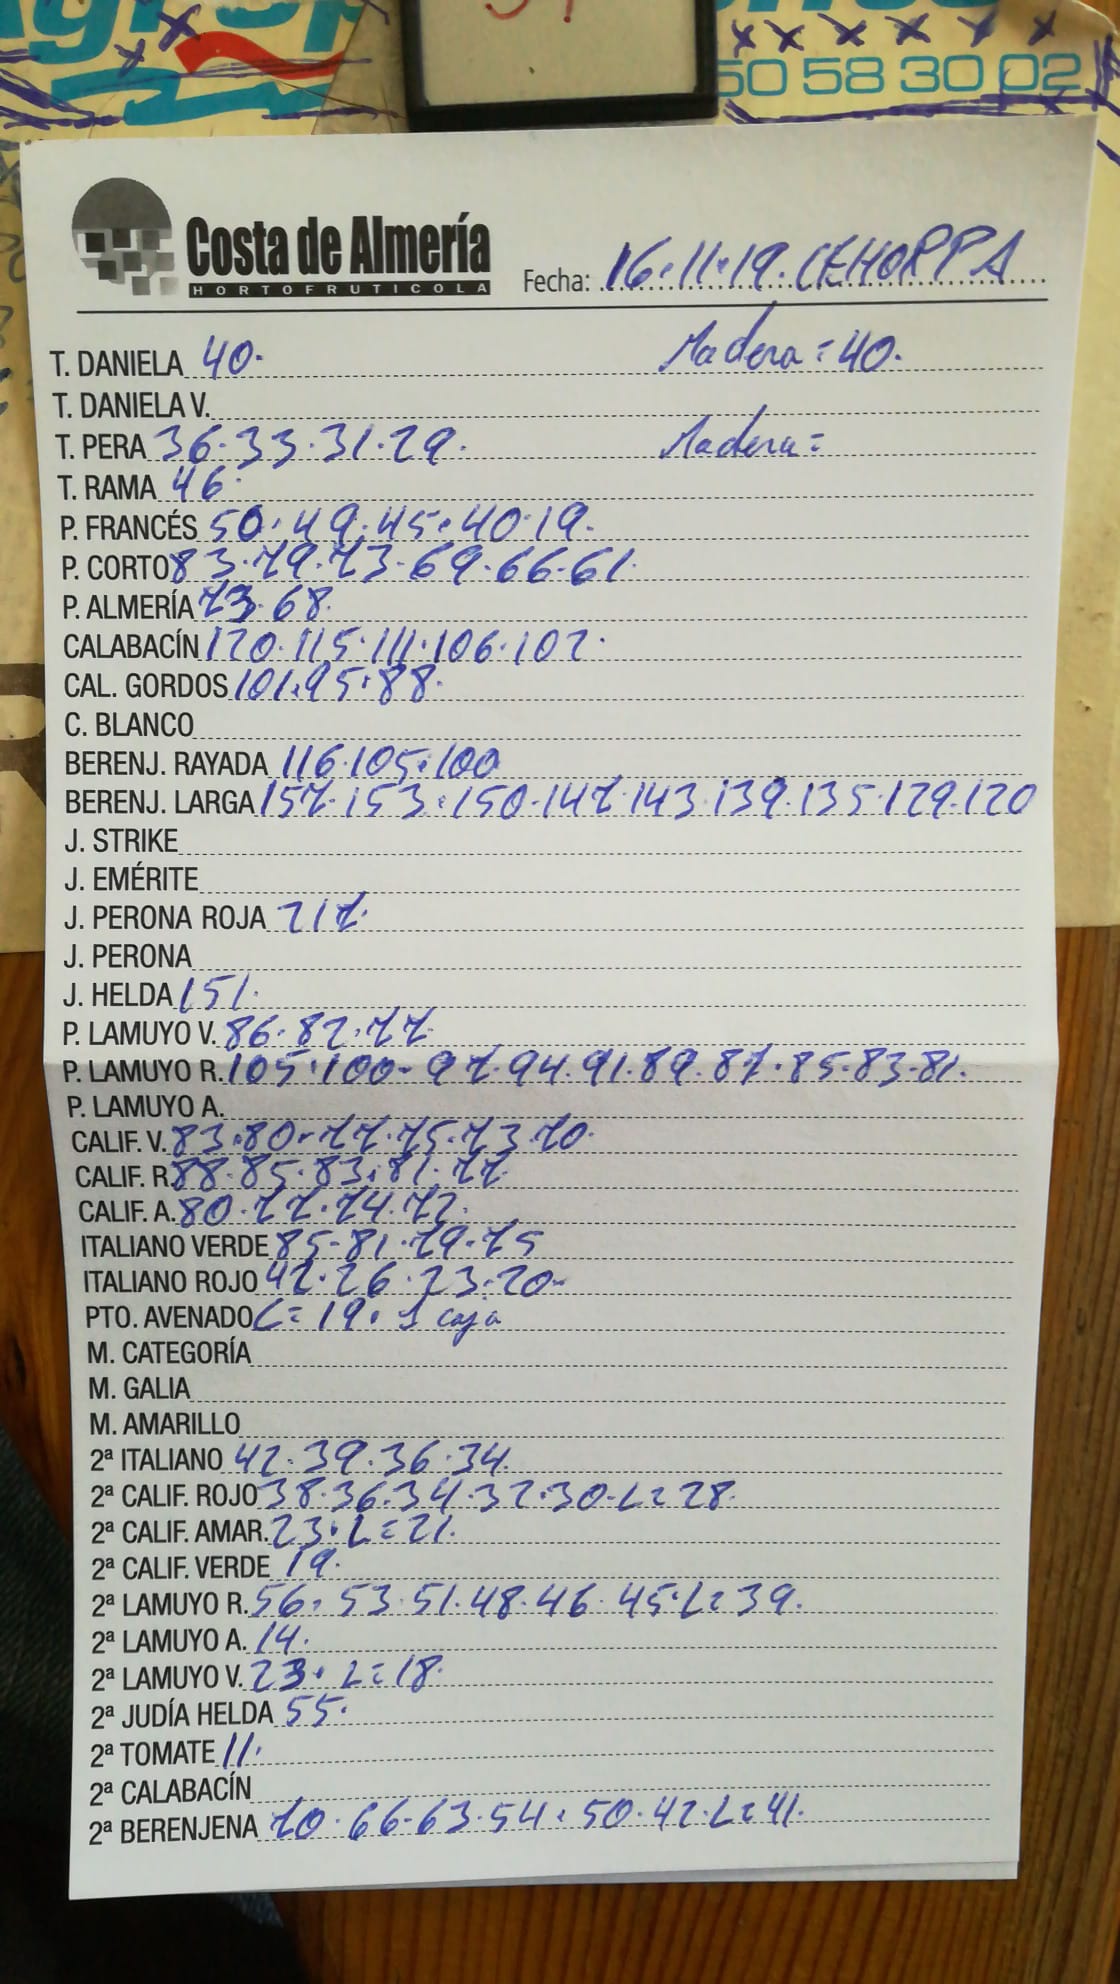 50 58 30 02
Costa de Almería
HORTOFRUTICOLA
Fecha: 16.11.19. CEHORPA
T. DANIELA 40. Madera = 40.
T. DANIELA V.
T. PERA 36.33.31.29. Madera =
T. RAMA 46.
P. FRANCÉS 50.49.45.40.19.
P. CORTO 83.79.73.69.66.61.
P. ALMERÍA 73.68.
CALABACÍN 120.115.111.106.102.
CAL. GORDOS 101.95.88.
C. BLANCO
BERENJ. RAYADA 116.105.100
BERENJ. LARGA 157.153.150.147.143.139.135.129.120
J. STRIKE
J. EMÉRITE
J. PERONA ROJA 217.
J. PERONA
J. HELDA 151.
P. LAMUYO V. 86.82.77.
P. LAMUYO R. 105.100.97.94.91.89.87.85.83.81.
P. LAMUYO A.
CALIF. V. 83.80.77.75.73.70.
CALIF. R. 88.85.83.81.77
CALIF. A. 80.77.74.72.
ITALIANO VERDE 85.81.79.75
ITALIANO ROJO 42.26.23.20.
PTO. AVENADO L= 19. 1 caja
M. CATEGORÍA
M. GALIA
M. AMARILLO
2ª ITALIANO 42.39.36.34.
2ª CALIF. ROJO 38.36.34.32.30.L=28.
2ª CALIF. AMAR. 23.L=21.
2ª CALIF. VERDE 19.
2ª LAMUYO R. 56.53.51.48.46.45.L=39.
2ª LAMUYO A. 14.
2ª LAMUYO V. 23.L=18.
2ª JUDÍA HELDA 55.
2ª TOMATE 11.
2ª CALABACÍN
2ª BERENJENA 70.66.63.54.50.42.L=41.